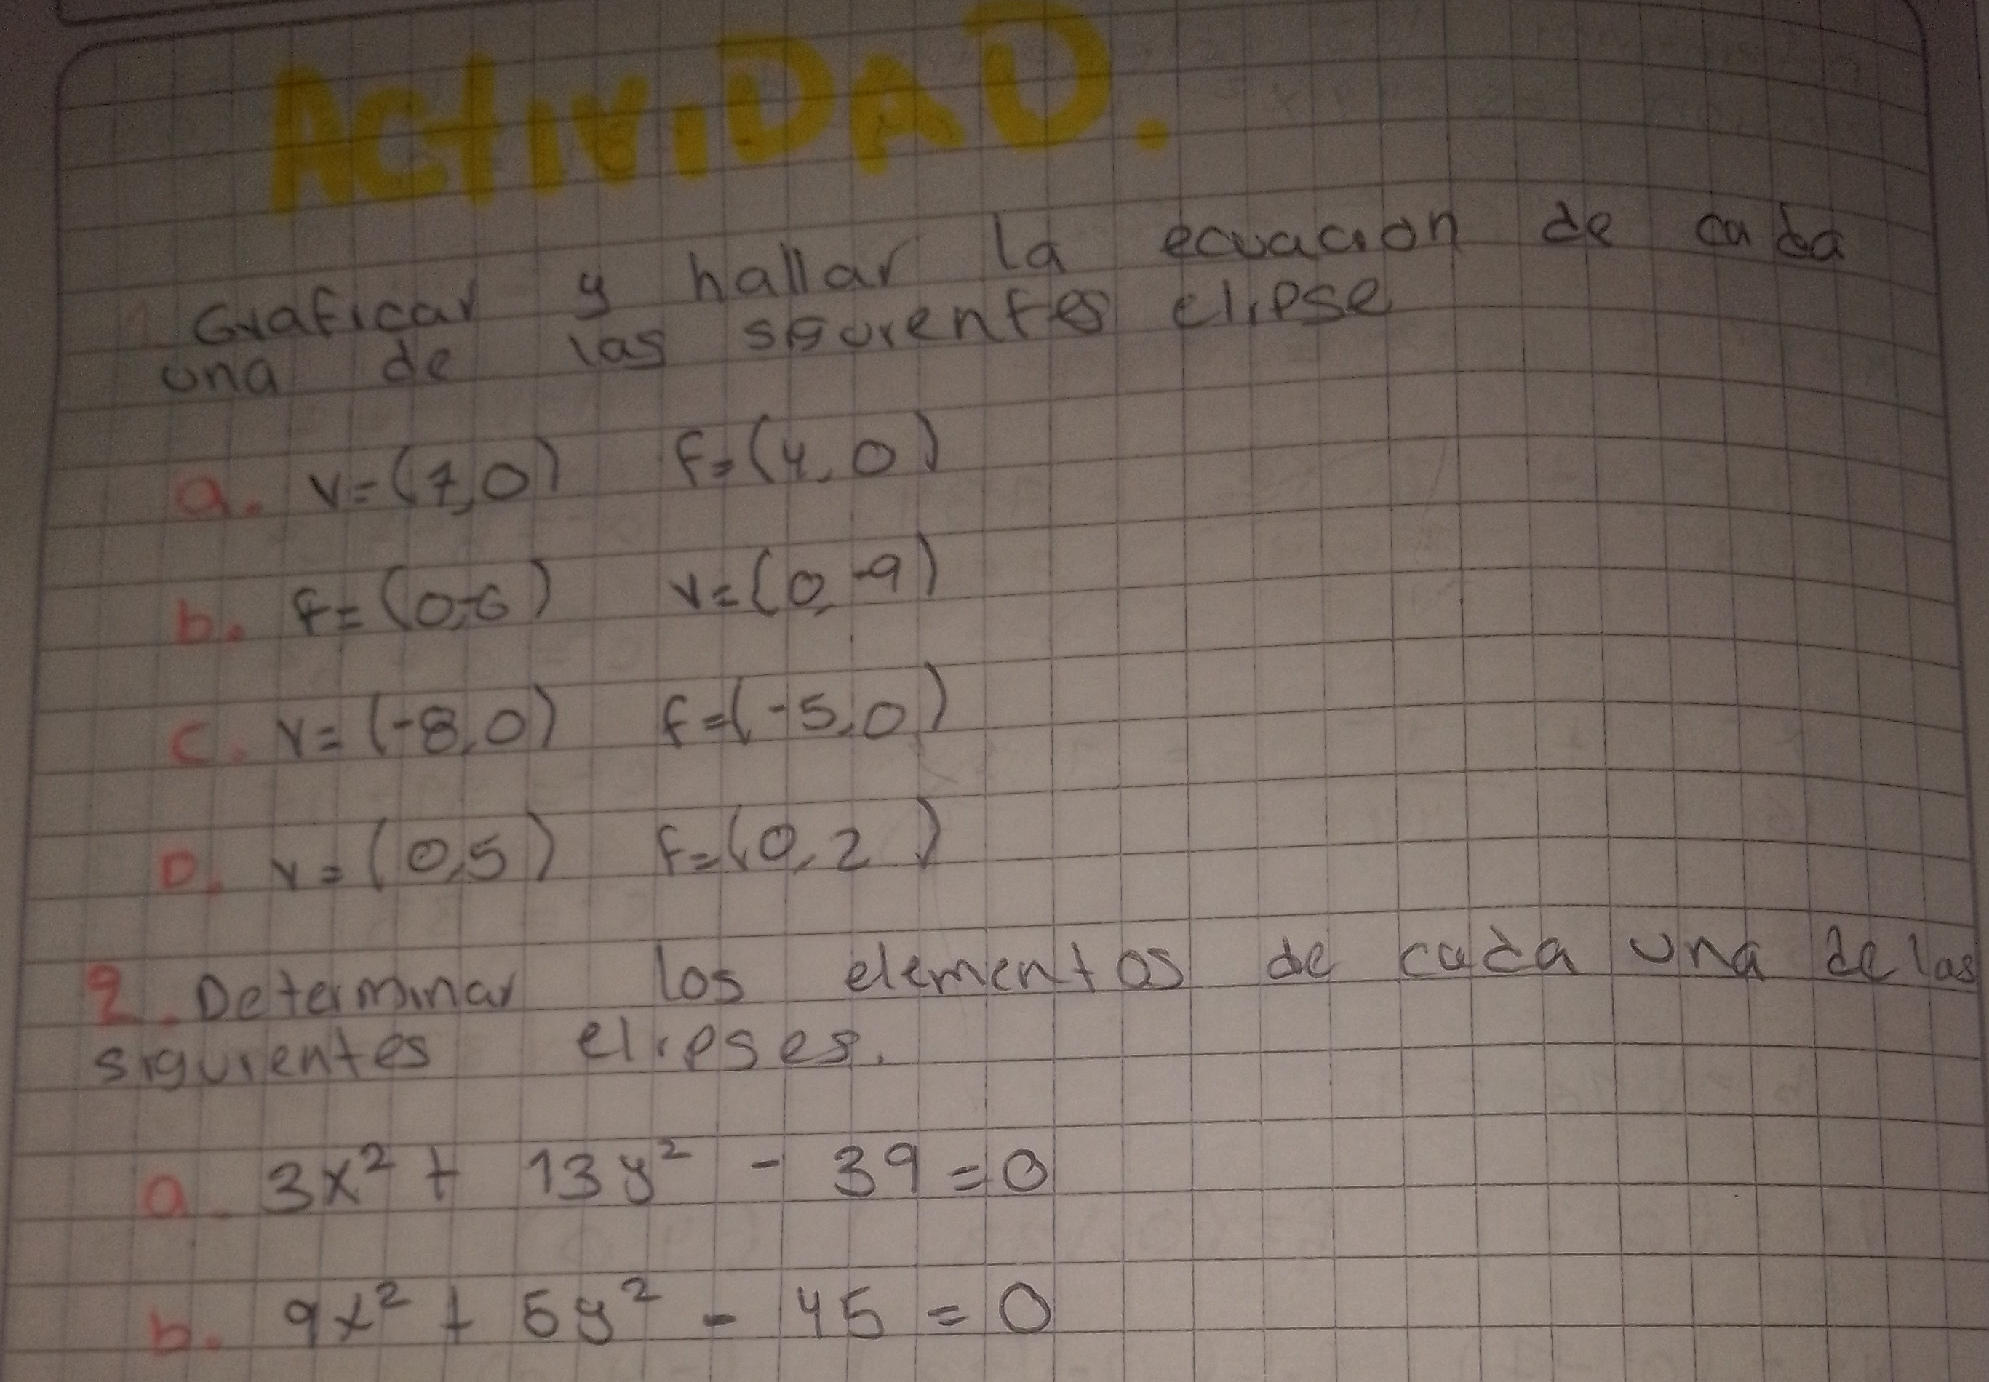 ACTIVIDAD.
Graficar y hallar la ecuacion de cada
una de las siguientes elipse
a. V=(7,0) F=(4,0)
b. F=(0,-6) V=(0,-9)
C. V=(-8,0) F=(-5,0)
D. V=(0,5) F=(0,2)
2. Determinar los elementos de cada una de las
siguientes elipses.
a. 3x² + 13y² - 39=0
b. 9x² + 5y² - 45 = 0